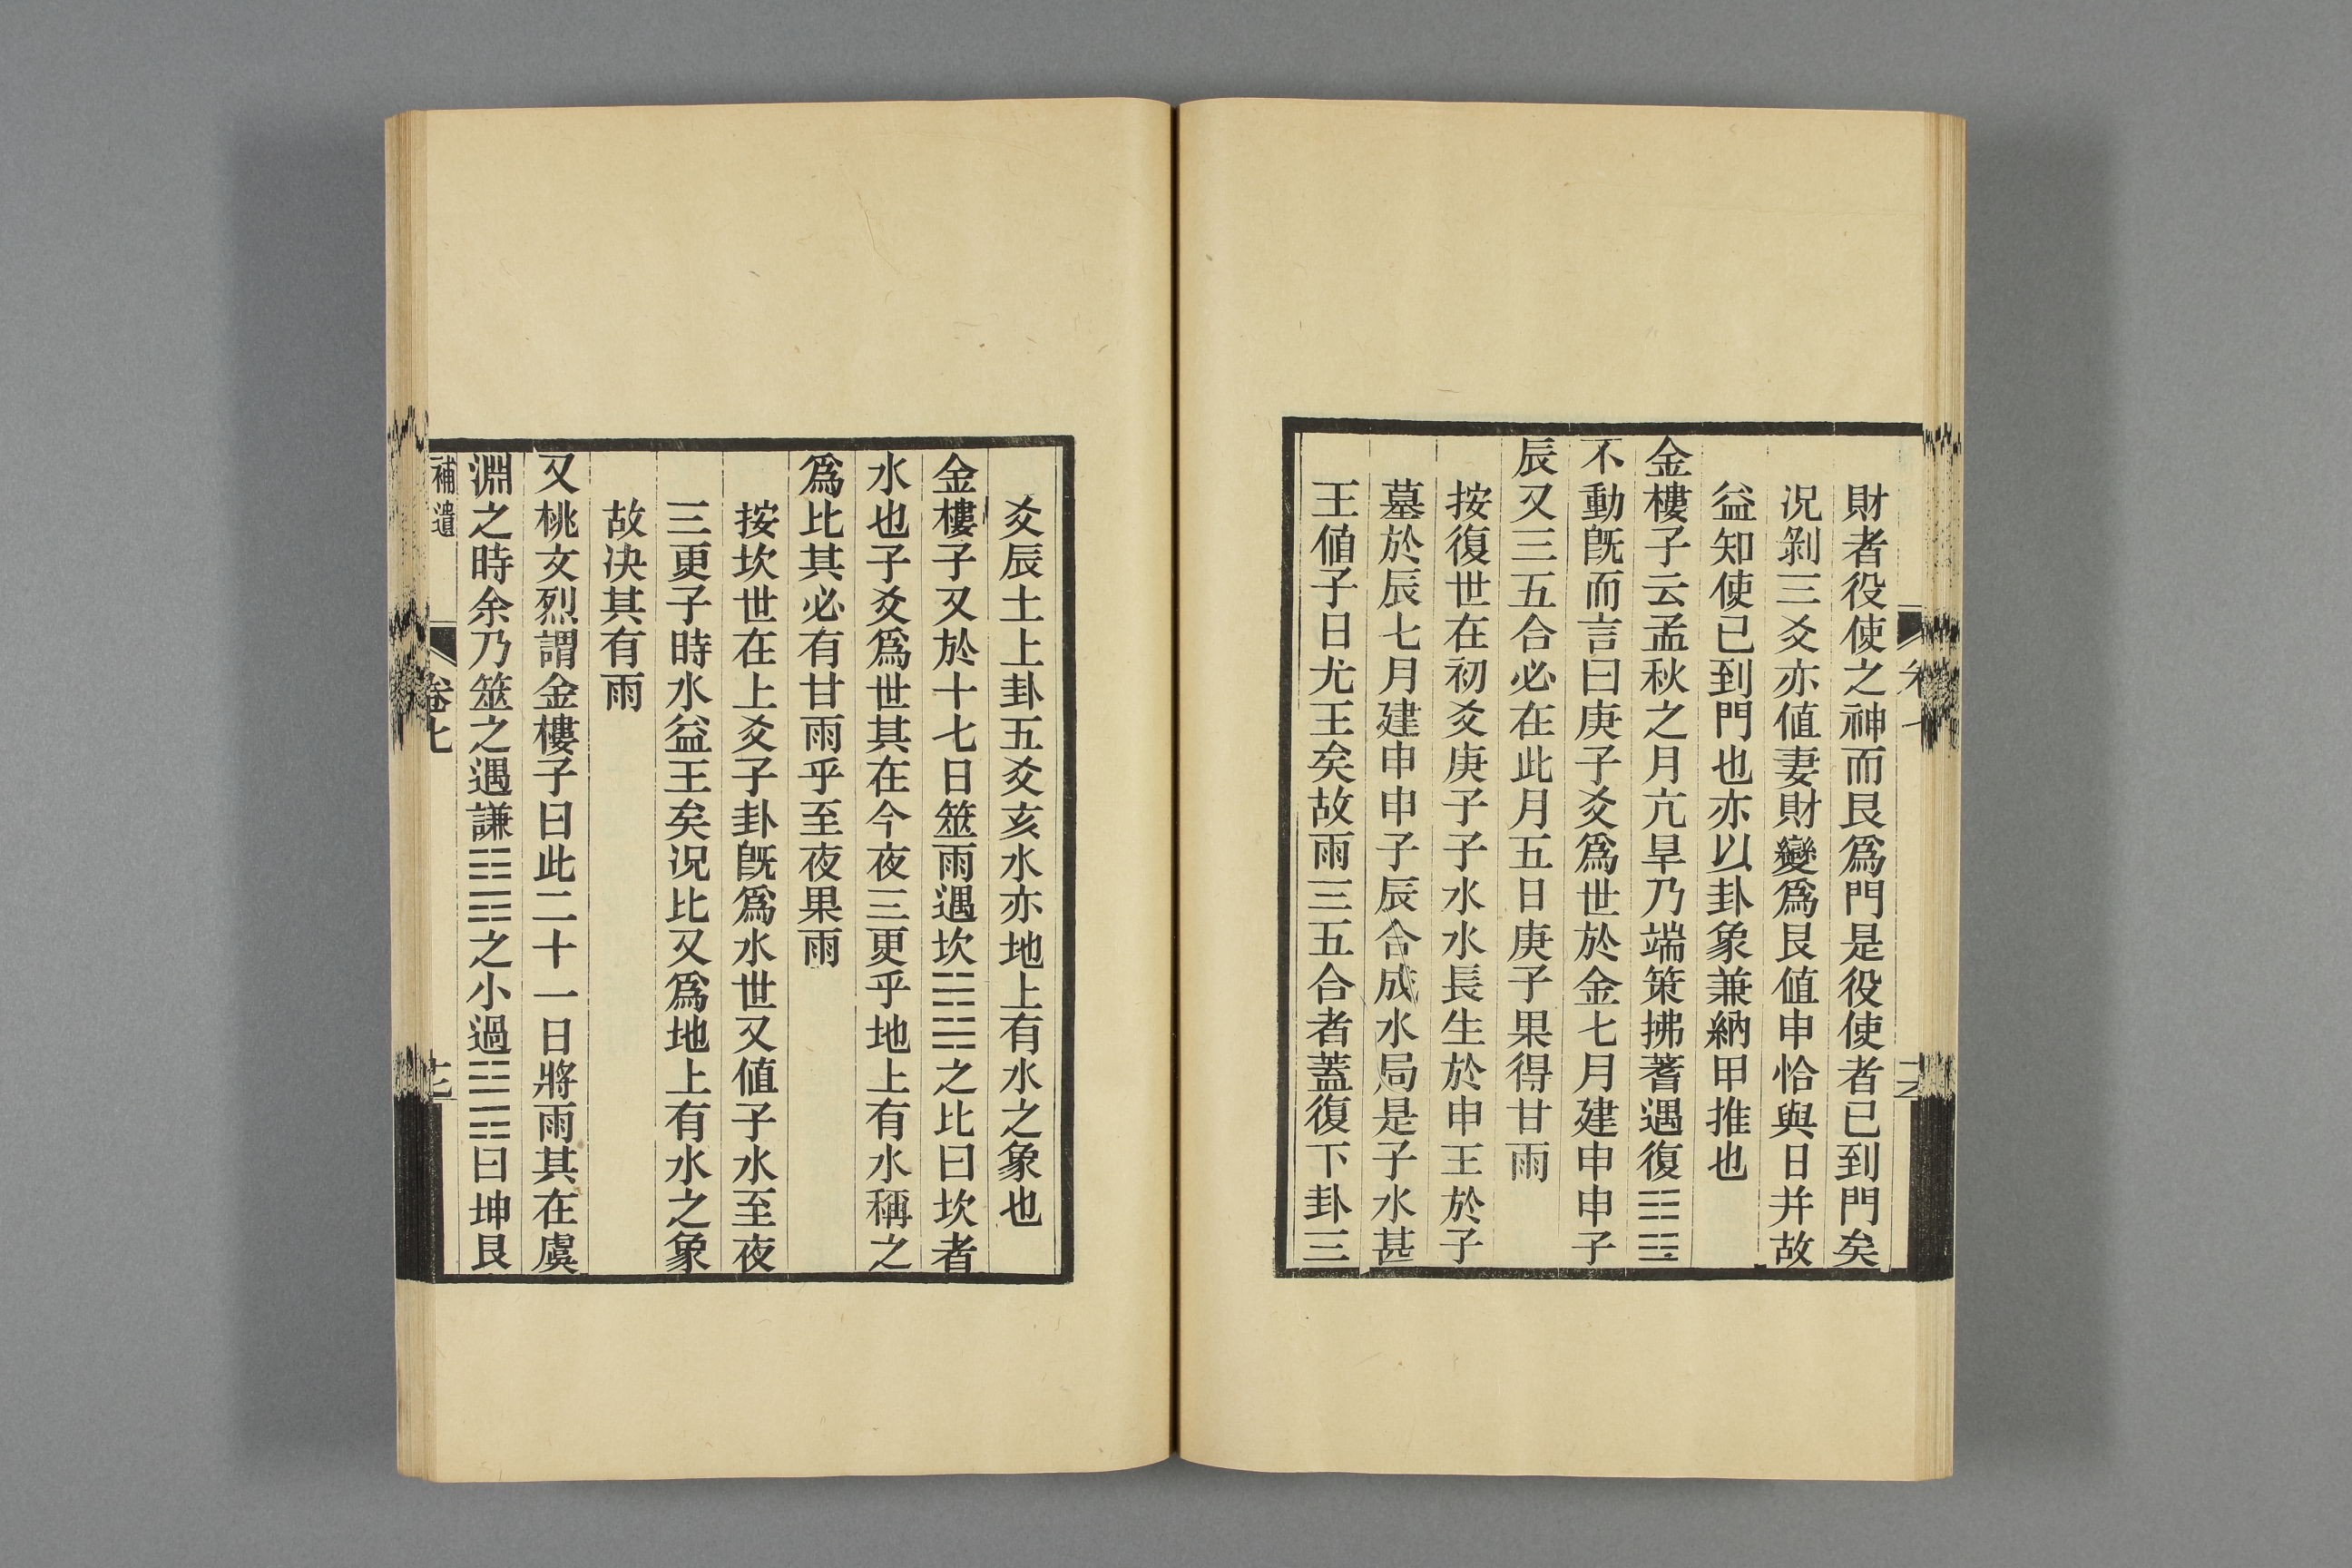 財者役使之神而艮爲門是役使者已到門矣
况剝三爻亦値妻財變爲艮値申恰與日并故
益知使已到門也亦以卦象兼納甲推也
金樓子云孟秋之月亢旱乃端策拂蓍遇復䷗
不動旣而言曰庚子爻爲世於金七月建申申子
辰又三五合必在此月五日庚子果得甘雨
按復世在初爻庚子子水水長生於申王於子
墓於辰七月建申申子辰合成水局是子水甚
王値子日尤王矣故雨三五合者蓋復下卦三
爻辰土上卦五爻亥水亦地上有水之象也
金樓子又於十七日筮雨遇坎䷜之比曰坎者
水也子爻爲世其在今夜三更乎地上有水稱之
爲比其必有甘雨乎至夜果雨
按坎世在上爻子卦旣爲水世又値子水至夜
三更子時水益王矣况比又爲地上有水之象
故決其有雨
又桃文烈謂金樓子曰此二十一日將雨其在虞
淵之時余乃筮之遇謙䷎之小過䷽曰坤艮
補遺
卷七